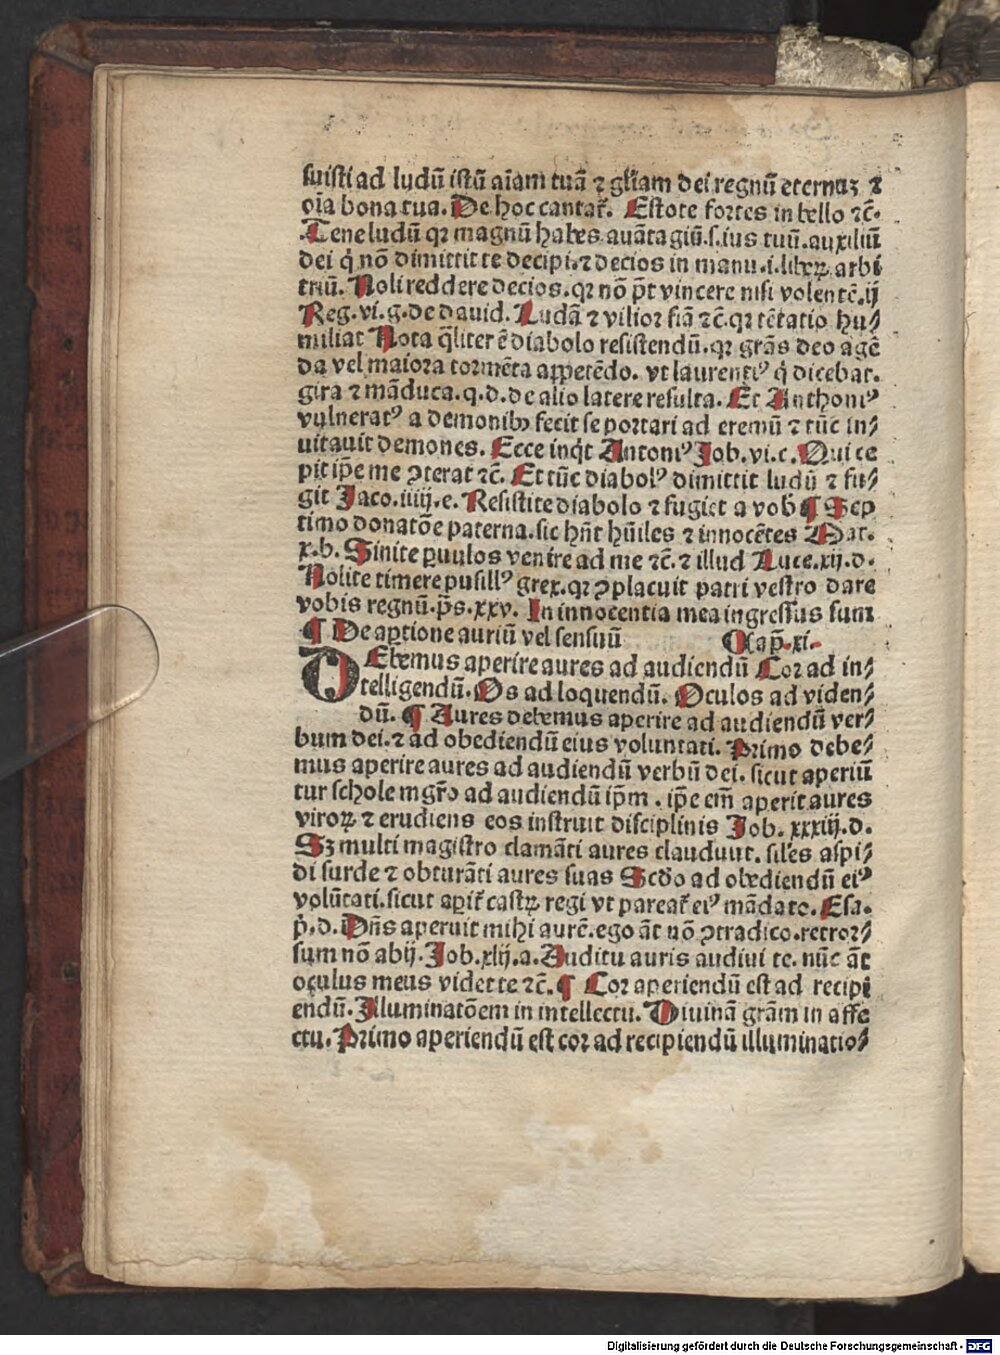 suisti ad ludū istū aīam tuā ⁊ gl'iam dei regnū eternuꝫ ⁊
oīa bona tua. De hoc cantat̄. Estote fortes in bello ⁊c̄.
Tene ludū qꝛ magnū habes auāta giū .s. ius tuū. auxiliū
dei q̇ nō dimittit te decipi. ⁊ decios in manu .i. liberꝝ arbi
triū. Noli reddere decios. qꝛ nō pt̄ vincere nisi volentē. ij
Reg. vi. g. de dauid. Ludā ⁊ vilior fiā ⁊c̄. qꝛ tētatio hu⸗
miliat Nota qͣliter ē diabolo resistendū. qꝛ grās deo agē
da vel maiora tormēta appetēdo. vt laurentiꝰ q̇ dicebat.
gira ⁊ māduca. q. d. de alio latere resulta. Et Anthoniꝰ
vulneratꝰ a demonibꝰ fecit se portari ad eremū ⁊ tūc in⸗
uitauit demones. Ecce inqͥt Antoniꝰ Job. vi. c. Qui ce
pit ip̄e me ꝯterat ⁊c̄. Et tūc diabolꝰ dimittit ludū ⁊ fu⸗
git Jaco. iiij. e. Resistite diabolo ⁊ fugiet a vob ¶ Sep
timo donatōe paterna. sic hn̄t hūiles ⁊ innocētes Mat.
x. b. Sinite ꝑuulos venire ad me ⁊c̄. ⁊ illud Luce. xij. d.
Nolite timere pusillꝰ grex. qꝛ ꝯplacuit patri vestro dare
vobis regnū. ps̄. xxv. In innocentia mea ingressus sum
¶ De aꝑtione auriū vel sensuū Cap̄. xi.
DEbemus aperire aures ad audiendū Cor ad in⸗
telligendū. Os ad loquendū. Oculos ad viden⸗
dū. ¶ Aures debemus aperire ad audiendū ver⸗
bum dei. ⁊ ad obediendū eius voluntati. Primo debe⸗
mus aperire aures ad audiendū verbū dei. sicut aperiū
tur schole mgr̄o ad audiendū ip̄m. ip̄e em̄ aperit aures
viroꝝ ⁊ erudiens eos instruit disciplinis Job. xxxiij. d.
Sꝫ multi magistro clamāti aures clauduut. sil'es aspi⸗
di surde ⁊ obturāti aures suas Scd'o ad obediendū eiꝰ
volūtati. sicut aꝑit̄ castꝝ regi vt pareat̄ eiꝰ mādato. Esa.
p̄. d. Dn̄s aperuit mihi aurē. ego āt nō ꝯtradico. retror⸗
sum nō abij. Job. xlij. a. Auditu auris audiui te. nūc āt
oculus meus videt te ⁊c̄. ¶ Cor aperiendū est ad recipi
endū. Illuminatōem in intellectu. Diuinā grām in affe
ctu. Primo aperiendū est cor ad recipiendū illuminatio⸗
Digitalisierung gefördert durch die Deutsche Forschungsgemeinschaft - DFG